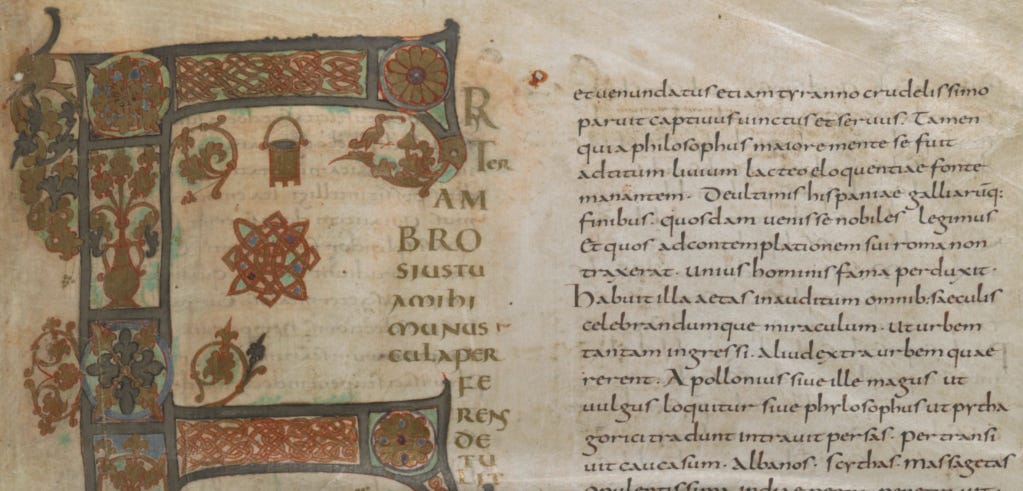 FRA
TER
AM
BRO
SIUSTU
AMIHI
MUNUS
CULAPER
FE
RENS
DE
TU
LIT
et uenundatus etiam tyranno crudelissimo
paruit captiuus uinctus et seruus. Tamen
quia philosophus maiore mente se fuit
ad titum liuium lacteo eloquentiae fonte
manantem. De ultimis hispaniae galliarūq:
finibus. quosdam uenisse nobiles legimus
Et quos ad contemplationem sui roma non
traxerat. unius hominis fama perduxit.
Habuit illa aetas inauditum omnib: saeculis
celebrandumque miraculum. Ut urbem
tantam ingressi. Aliud extra urbem quae
rerent. Apollonius siue ille magus ut
uulgus loquitur siue phylosophus ut pytha
gorici tradunt intrauit persas. Pertransi
uit caucasum. Albanos. scythas. massagetas
opulentissima indiae regna penetrauit